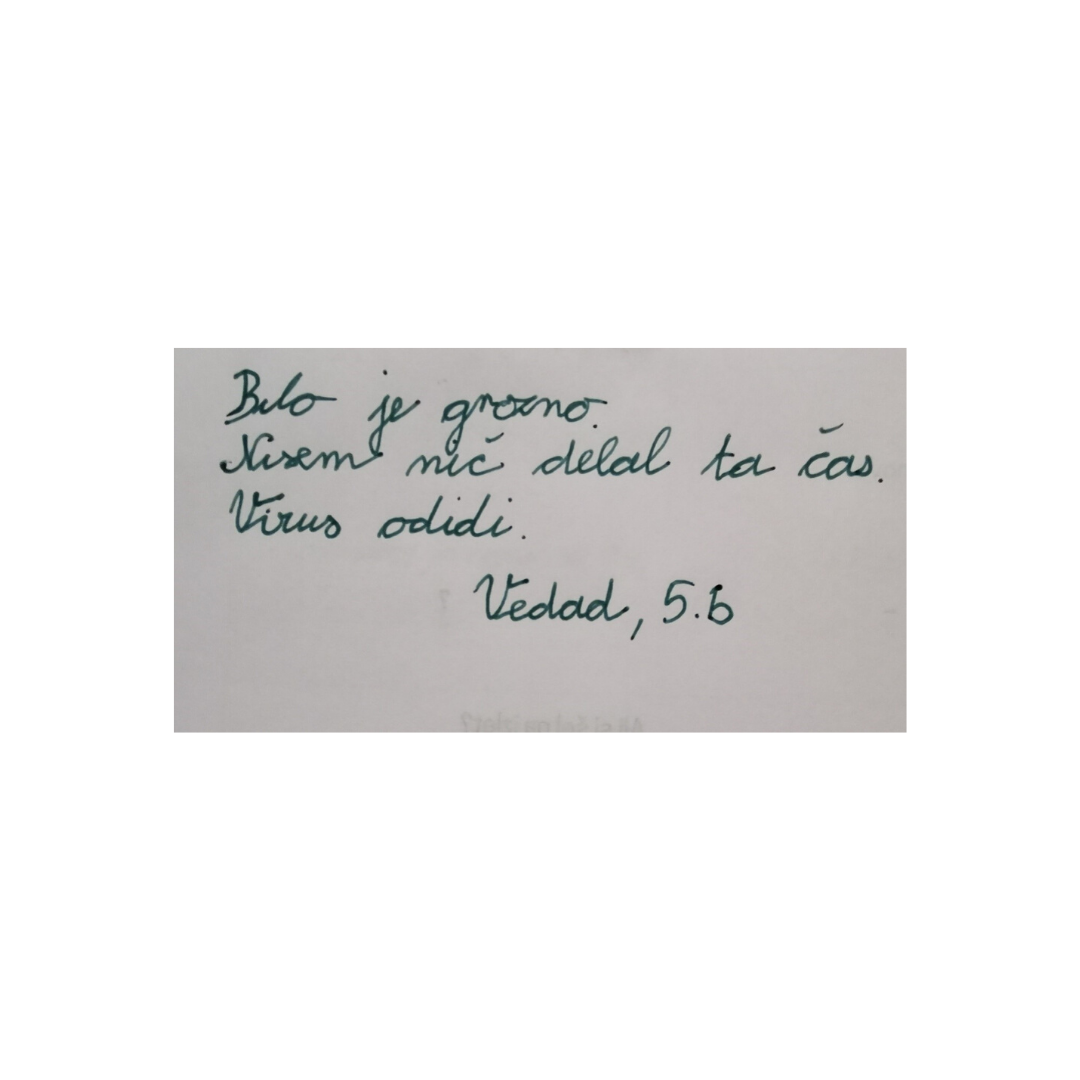 Bilo je grozno.
Nisem nič delal ta čas.
Virus odidi.
Vedad, 5.b